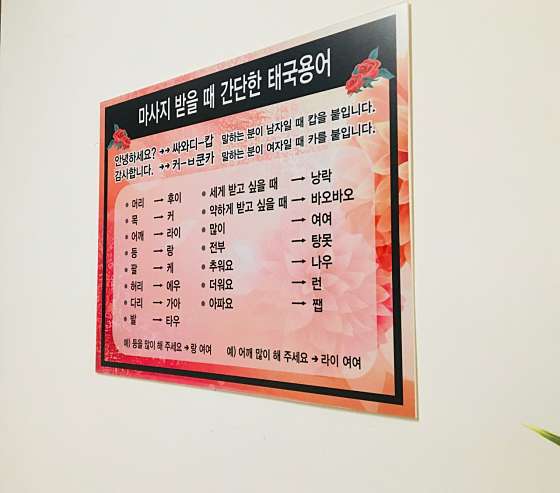 마사지 받을 때 간단한 태국용어
안녕하세요? →→ 싸와디-캅 말하는 분이 남자일 때 캅을 붙입니다.
감사합니다. →→ 커-ㅂ쿤카 말하는 분이 여자일 때 카를 붙입니다.
• 머리 → 후이
• 목 → 커
• 어깨 → 라이
• 등 → 랑
• 팔 → 케
• 허리 → 에우
• 다리 → 가아
• 발 → 타우
• 세게 받고 싶을 때 → 낭락
• 약하게 받고 싶을 때 → 바오바오
• 많이 → 여여
• 전부 → 탕못
• 추워요 → 나우
• 더워요 → 런
• 아파요 → 쨉
예) 등을 많이 해 주세요 → 랑 여여 예) 어깨 많이 해 주세요 → 라이 여여